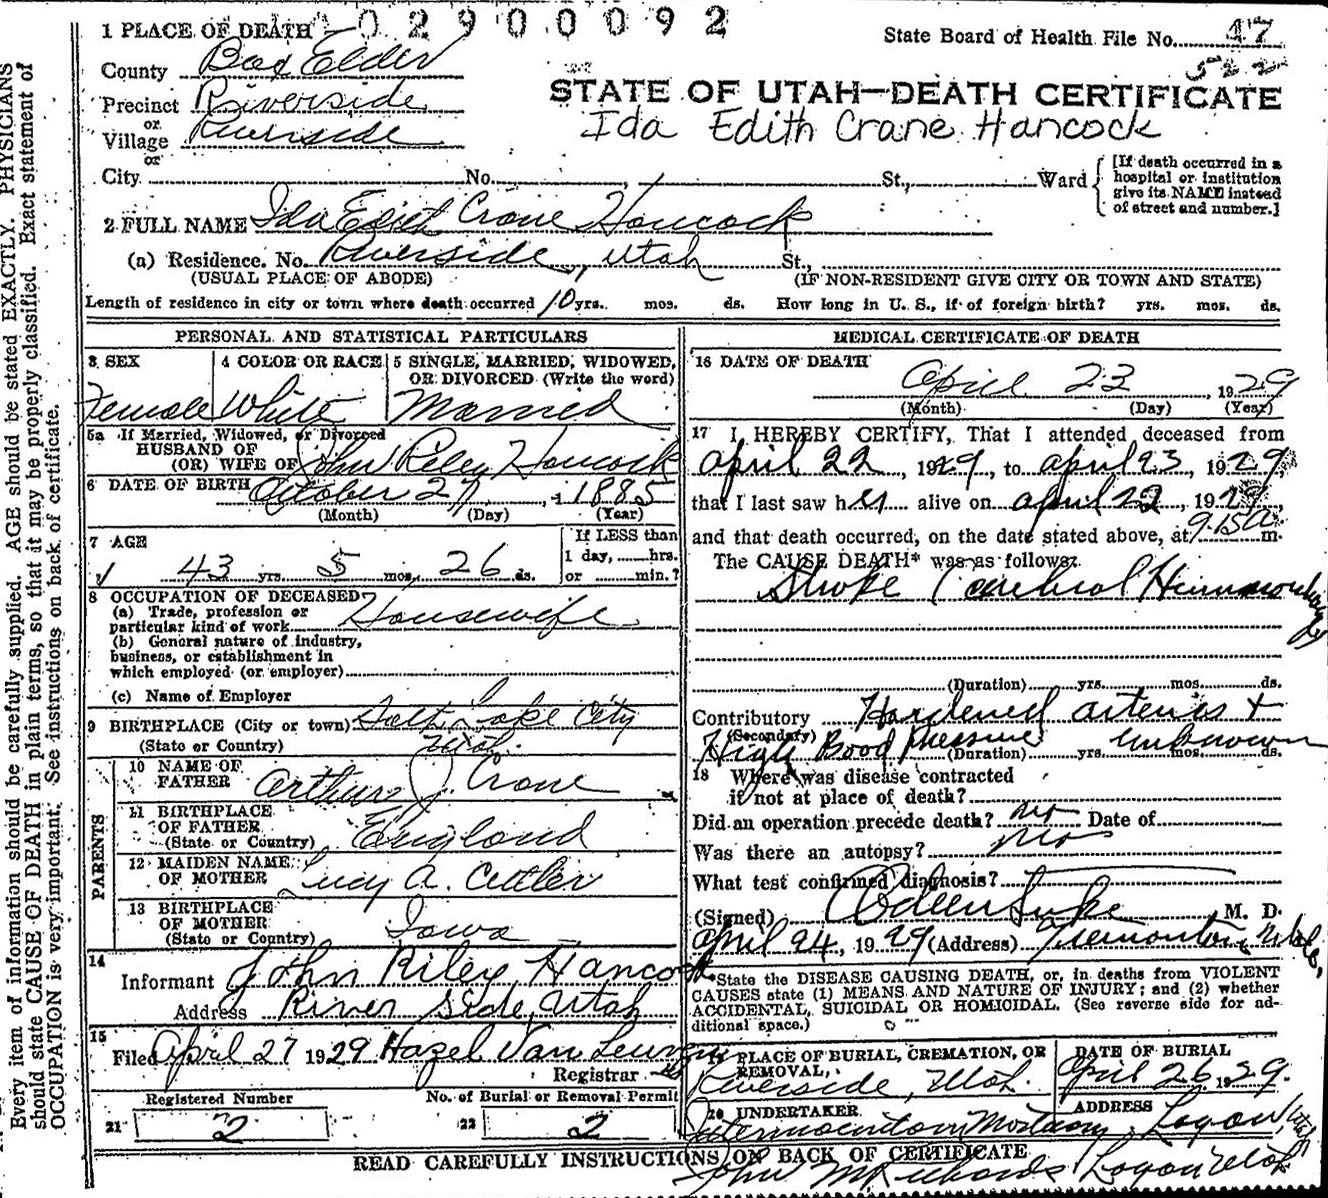 02900092
1 PLACE OF DEATH
State Board of Health File No. 47
522
County Box Elder
STATE OF UTAH—DEATH CERTIFICATE
Precinct Riverside
Ida Edith Crane Hancock
or
Village Riverside
or
City No. St., Ward
[If death occurred in a
hospital or institution
give its NAME instead
of street and number.]
2 FULL NAME Ida Edith Crane Hancock
(a) Residence. No. Riverside, Utah St.,
(USUAL PLACE OF ABODE) (IF NON-RESIDENT GIVE CITY OR TOWN AND STATE)
Length of residence in city or town where death occurred 10 yrs. mos. ds. How long in U. S., if of foreign birth? yrs. mos. ds.
PERSONAL AND STATISTICAL PARTICULARS
3 SEX
Female
4 COLOR OR RACE
White
5 SINGLE, MARRIED, WIDOWED,
OR DIVORCED (Write the word)
Married
5a If Married, Widowed, or Divorced
HUSBAND OF
(OR) WIFE OF John Riley Hancock
6 DATE OF BIRTH October 27, 1885
(Month) (Day) (Year)
7 AGE
43 yrs. 5 mos. 26 ds.
If LESS than
1 day, ......hrs.
or ......min.?
8 OCCUPATION OF DECEASED
(a) Trade, profession or
particular kind of work Housewife
(b) General nature of industry,
business, or establishment in
which employed (or employer)
(c) Name of Employer
9 BIRTHPLACE (City or town) Salt Lake City
(State or Country) Utah.
PARENTS
10 NAME OF
FATHER Arthur J. Crane
11 BIRTHPLACE
OF FATHER
(State or Country) England
12 MAIDEN NAME
OF MOTHER Lucy A. Cutler
13 BIRTHPLACE
OF MOTHER
(State or Country) Iowa
14
Informant John Riley Hancock
Address River Side, Utah
15
Filed April 27 1929 Hazel Van
Registrar
Registered Number
21 2
No. of Burial or Removal Permit
22 2
MEDICAL CERTIFICATE OF DEATH
16 DATE OF DEATH
April 23, 1929
(Month) (Day) (Year)
17 I HEREBY CERTIFY, That I attended deceased from
April 22, 1929, to April 23, 1929,
that I last saw her alive on April 22, 1929
and that death occurred, on the date stated above, at 9.15 a m.
The CAUSE DEATH* was as follows:
Stroke (
(Duration) yrs. mos. ds.
Contributory Hardened arteries +
(Secondary)
High Bood Pressure (Duration) unknown yrs. mos. ds.
18 Where was disease contracted
if not at place of death?
Did an operation precede death? no Date of
Was there an autopsy? no
What test confirmed diagnosis?
(Signed) Luke M. D.
April 24, 1929 (Address) Tremonton, Utah,
*State the DISEASE CAUSING DEATH, or, in deaths from VIOLENT
CAUSES state (1) MEANS AND NATURE OF INJURY; and (2) whether
ACCIDENTAL, SUICIDAL OR HOMICIDAL. (See reverse side for ad-
ditional space.)
PLACE OF BURIAL, CREMATION, OR
REMOVAL,
Riverside, Utah.
DATE OF BURIAL
April 26, 1929.
20 UNDERTAKER
Intermountain Mortuary
ADDRESS
Logan, Utah
READ CAREFULLY INSTRUCTIONS ON BACK OF CERTIFICATE
John M Richards Logan Utah
Every item of information should be carefully supplied. AGE should be stated EXACTLY. PHYSICIANS
should state CAUSE OF DEATH in plain terms, so that it may be properly classified. Exact statement of
OCCUPATION is very important. See instructions on back of certificate.